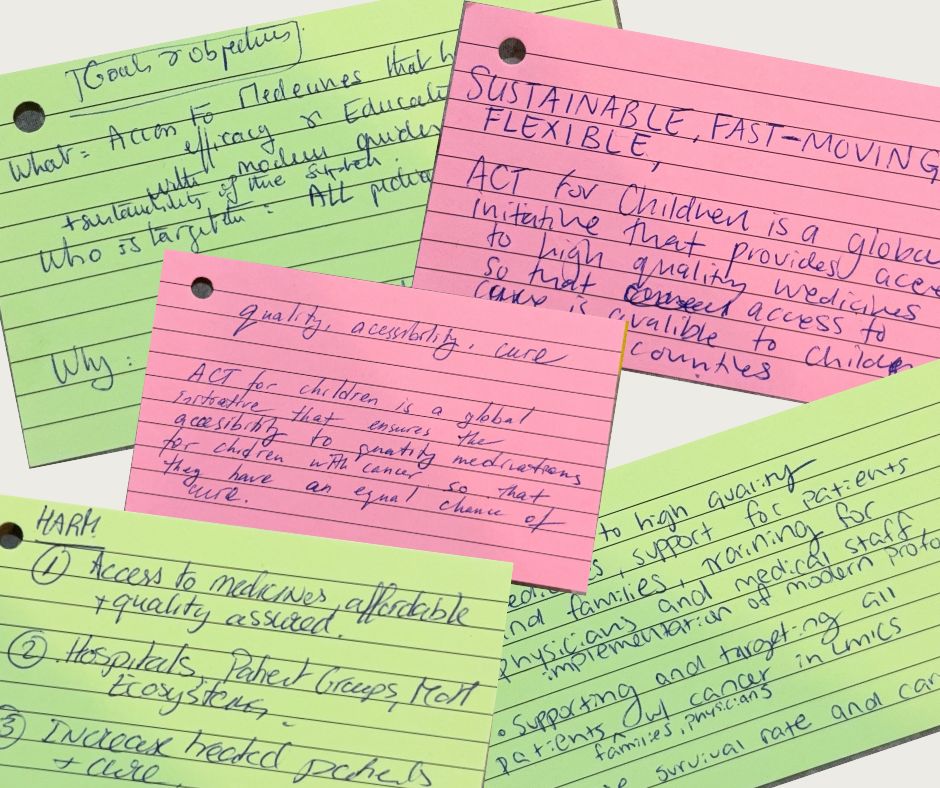 Goals & Objectives.
What: Access to Medicines that h
efficacy & Educati
with modern guides
+ sustainability of the system.
Who is target : ALL
Why :
SUSTAINABLE, FAST-MOVING
FLEXIBLE,
ACT for Children is a globa
initiative that provides acce
to high quality medicines
so that access to
care is avalible to childre
counties
quality, acessibility, cure
ACT for children is a global
initiative that ensures the
accesibility to quality medications
for chidren with cancer so that
they have an equal chance of
cure.
HARM
① Access to medicines affordable
+ quality assured.
② Hospitals, Patient Groups, MoH
Ecosystem,
③ Increase treated patients
+ cure
to high quality
s, support for patients
nd families, training for
physicians and medical staff
implementation of modern proto
• Supporting and targeting all
patients w/ cancer in LMICS
families, physicians
survival rate and car